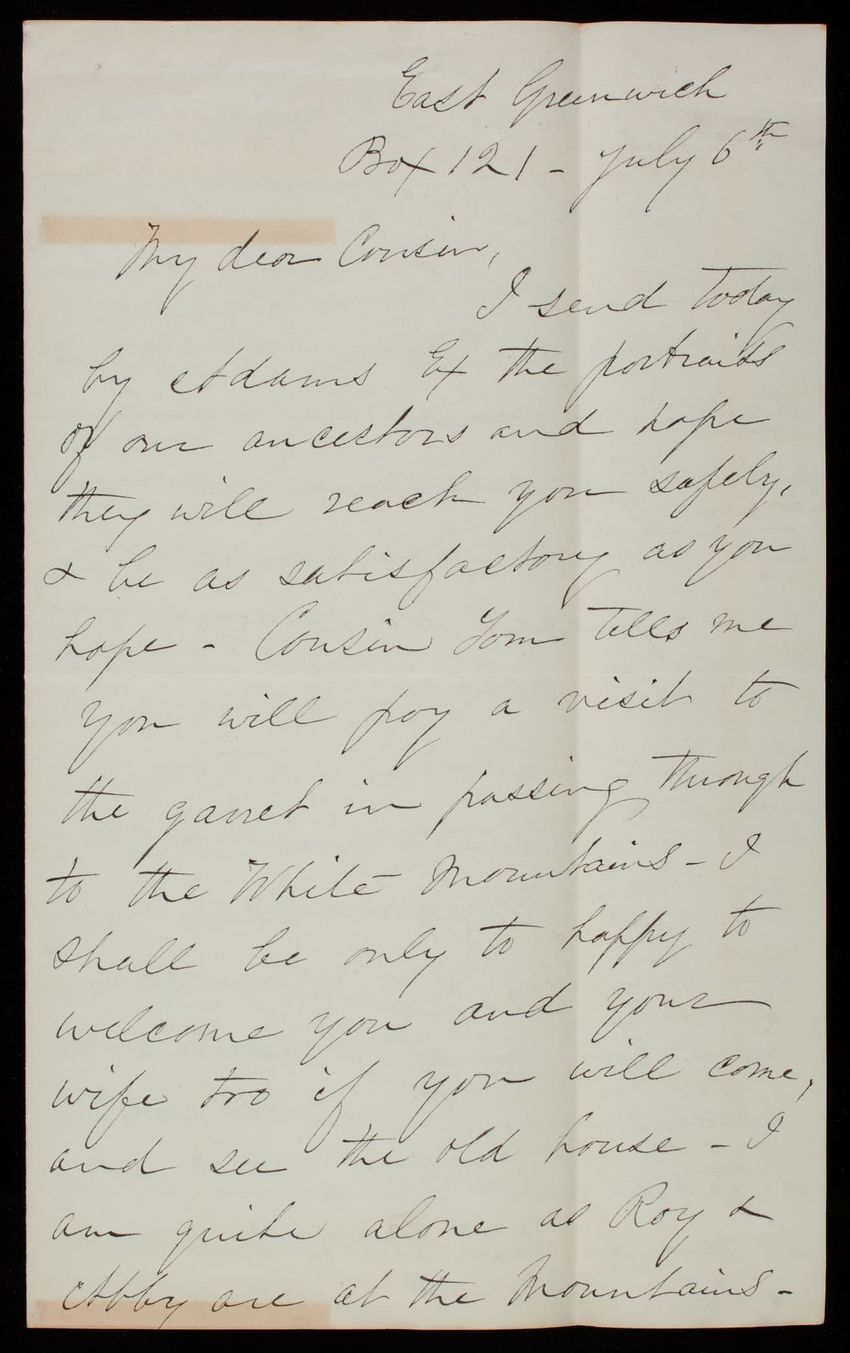 East Greenwich
Box 121 - July 6th
My dear Cousin,
I send today
by Adams Ex the portraits
of our ancestors and hope
they will reach you safely,
& be as satisfactory as you
hope - Cousin Tom tells me
you will pay a visit to
the garret in passing through
to the White Mountains - I
shall be only to happy to
welcome you and your
wife too if you will come,
and see the old house - I
am quite alone as Roy &
Abby are at the Mountains -